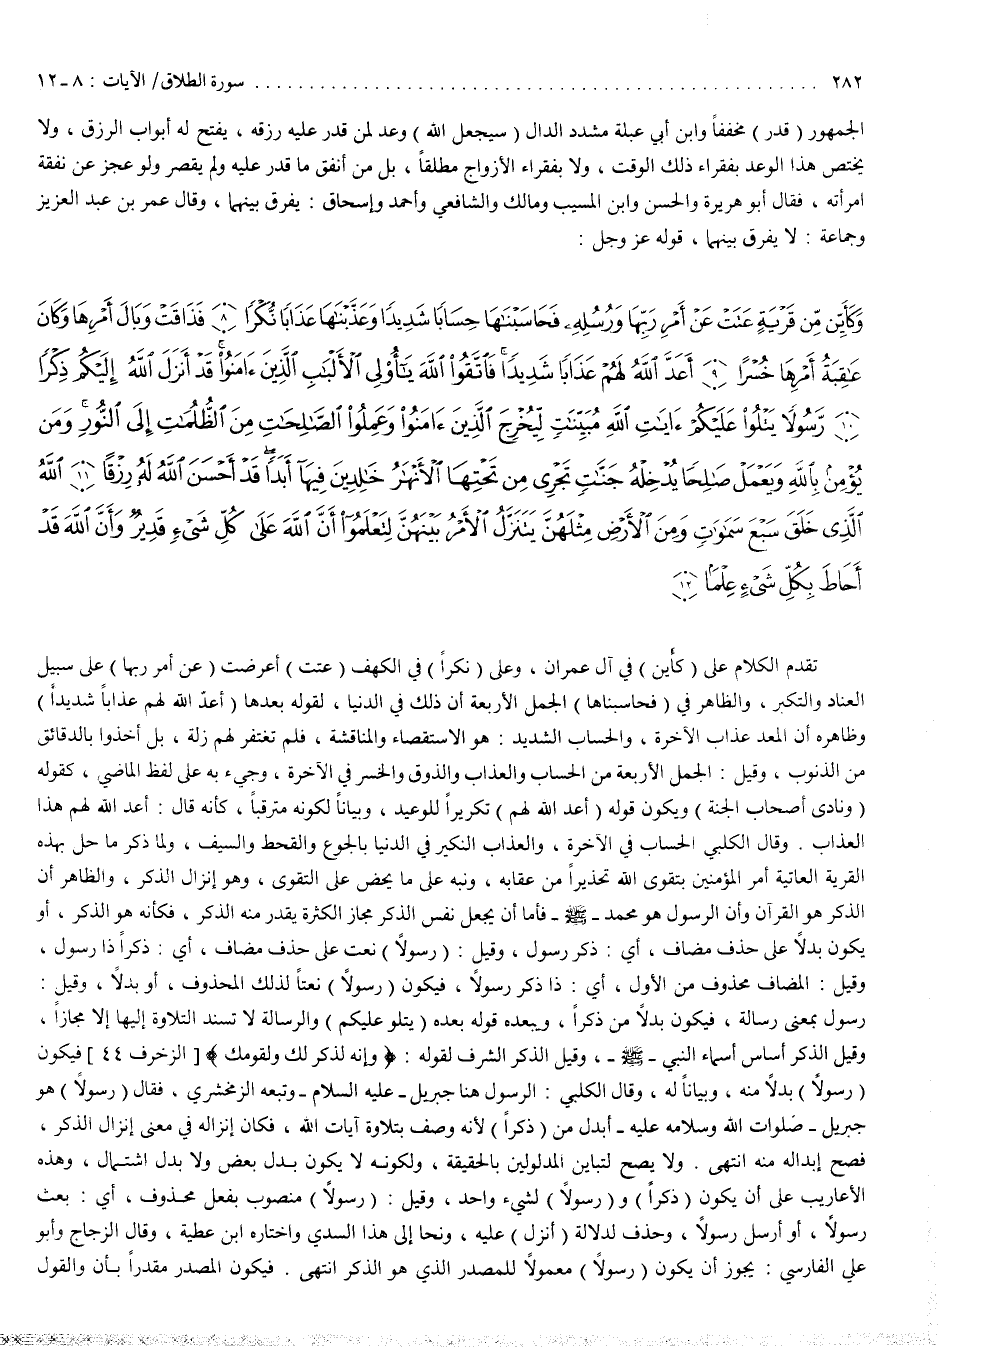 ٢٨٢ ................................................ سورة الطلاق/ الآيات : ٨ ـ ١٢
الجمهور ( قدر ) مخففاً وابن أبي عبلة مشدد الدال ( سيجعل الله ) وعد لمن قدر عليه رزقه ، يفتح له أبواب الرزق ، ولا
يختص هذا الوعد بفقراء ذلك الوقت ، ولا بفقراء الأزواج مطلقاً ، بل من أنفق ما قدر عليه ولم يقصر ولو عجز عن نفقة
امرأته ، فقال أبو هريرة والحسن وابن المسيب ومالك والشافعي وأحمد وإسحاق : يفرق بينهما ، وقال عمر بن عبد العزيز
وجماعة : لا يفرق بينهما ، قوله عز وجل :
وَكَأَيِّن مِّن قَرْيَةٍ عَتَتْ عَنْ أَمْرِ رَبِّهَا وَرُسُلِهِۦ فَحَاسَبْنَٰهَا حِسَابًا شَدِيدًا وَعَذَّبْنَٰهَا عَذَابًا نُّكْرًا ٨ فَذَاقَتْ وَبَالَ أَمْرِهَا وَكَانَ
عَٰقِبَةُ أَمْرِهَا خُسْرًا ٩ أَعَدَّ ٱللَّهُ لَهُمْ عَذَابًا شَدِيدًا ۖ فَٱتَّقُوا۟ ٱللَّهَ يَٰٓأُو۟لِى ٱلْأَلْبَٰبِ ٱلَّذِينَ ءَامَنُوا۟ ۚ قَدْ أَنزَلَ ٱللَّهُ إِلَيْكُمْ ذِكْرًا
١٠ رَّسُولًا يَتْلُوا۟ عَلَيْكُمْ ءَايَٰتِ ٱللَّهِ مُبَيِّنَٰتٍ لِّيُخْرِجَ ٱلَّذِينَ ءَامَنُوا۟ وَعَمِلُوا۟ ٱلصَّٰلِحَٰتِ مِنَ ٱلظُّلُمَٰتِ إِلَى ٱلنُّورِ ۚ وَمَن
يُؤْمِنۢ بِٱللَّهِ وَيَعْمَلْ صَٰلِحًا يُدْخِلْهُ جَنَّٰتٍ تَجْرِى مِن تَحْتِهَا ٱلْأَنْهَٰرُ خَٰلِدِينَ فِيهَآ أَبَدًا ۖ قَدْ أَحْسَنَ ٱللَّهُ لَهُۥ رِزْقًا ١١ ٱللَّهُ
ٱلَّذِى خَلَقَ سَبْعَ سَمَٰوَٰتٍ وَمِنَ ٱلْأَرْضِ مِثْلَهُنَّ يَتَنَزَّلُ ٱلْأَمْرُ بَيْنَهُنَّ لِتَعْلَمُوٓا۟ أَنَّ ٱللَّهَ عَلَىٰ كُلِّ شَىْءٍ قَدِيرٌ وَأَنَّ ٱللَّهَ قَدْ
أَحَاطَ بِكُلِّ شَىْءٍ عِلْمًۢا ١٢
تقدم الكلام على ( كأين ) في آل عمران ، وعلى ( نكراً ) في الكهف ( عتت ) أعرضت ( عن أمر ربها ) على سبيل
العناد والتكبر ، والظاهر في ( فحاسبناها ) الجمل الأربعة أن ذلك في الدنيا ، لقوله بعدها ( أعدّ الله لهم عذاباً شديداً )
وظاهره أن المعد عذاب الآخرة ، والحساب الشديد : هو الاستقصاء والمناقشة ، فلم تغتفر لهم زلة ، بل أخذوا بالدقائق
من الذنوب ، وقيل : الجمل الأربعة من الحساب والعذاب والذوق والخسر في الآخرة ، وجيء به على لفظ الماضي ، كقوله
( ونادى أصحاب الجنة ) ويكون قوله ( أعد الله لهم ) تكريراً للوعيد ، وبياناً لكونه مترقباً ، كأنه قال : أعد الله لهم هذا
العذاب . وقال الكلبي الحساب في الآخرة ، والعذاب النكير في الدنيا بالجوع والقحط والسيف ، ولما ذكر ما حل بهذه
القرية العاتية أمر المؤمنين بتقوى الله تحذيراً من عقابه ، ونبه على ما يحض على التقوى ، وهو إنزال الذكر ، والظاهر أن
الذكر هو القرآن وأن الرسول هو محمد ـ ﷺ ـ فأما أن يجعل نفس الذكر مجاز الكثرة يقدر منه الذكر ، فكأنه هو الذكر ، أو
يكون بدلاً على حذف مضاف ، أي : ذكر رسول ، وقيل : ( رسولاً ) نعت على حذف مضاف ، أي : ذكراً ذا رسول ،
وقيل : المضاف محذوف من الأول ، أي : ذا ذكر رسولاً ، فيكون ( رسولاً ) نعتاً لذلك المحذوف ، أو بدلاً ، وقيل :
رسول بمعنى رسالة ، فيكون بدلاً من ذكراً ، ويبعده قوله بعده ( يتلو عليكم ) والرسالة لا تسند التلاوة إليها إلا مجازاً ،
وقيل الذكر أساس أسماء النبي ـ ﷺ ـ ، وقيل الذكر الشرف لقوله : ﴿ وإنه لذكر لك ولقومك ﴾ [ الزخرف ٤٤ ] فيكون
( رسولاً ) بدلاً منه ، وبياناً له ، وقال الكلبي : الرسول هنا جبريل ـ عليه السلام ـ وتبعه الزمخشري ، فقال ( رسولاً ) هو
جبريل ـ صَلوات الله وسلامه عليه ـ أبدل من ( ذكراً ) لأنه وصف بتلاوة آيات الله ، فكان إنزاله في معنى إنزال الذكر ،
فصح إبداله منه انتهى . ولا يصح لتباين المدلولين بالحقيقة ، ولكونه لا يكون بدل بعض ولا بدل اشتمال ، وهذه
الأعاريب على أن يكون ( ذكراً ) و ( رسولاً ) لشيء واحد ، وقيل : ( رسولاً ) منصوب بفعل محذوف ، أي : بعث
رسولاً ، أو أرسل رسولاً ، وحذف لدلالة ( أنزل ) عليه ، ونحا إلى هذا السدي واختاره ابن عطية ، وقال الزجاج وأبو
علي الفارسي : يجوز أن يكون ( رسولاً ) معمولاً للمصدر الذي هو الذكر انتهى . فيكون المصدر مقدراً بأن والقول